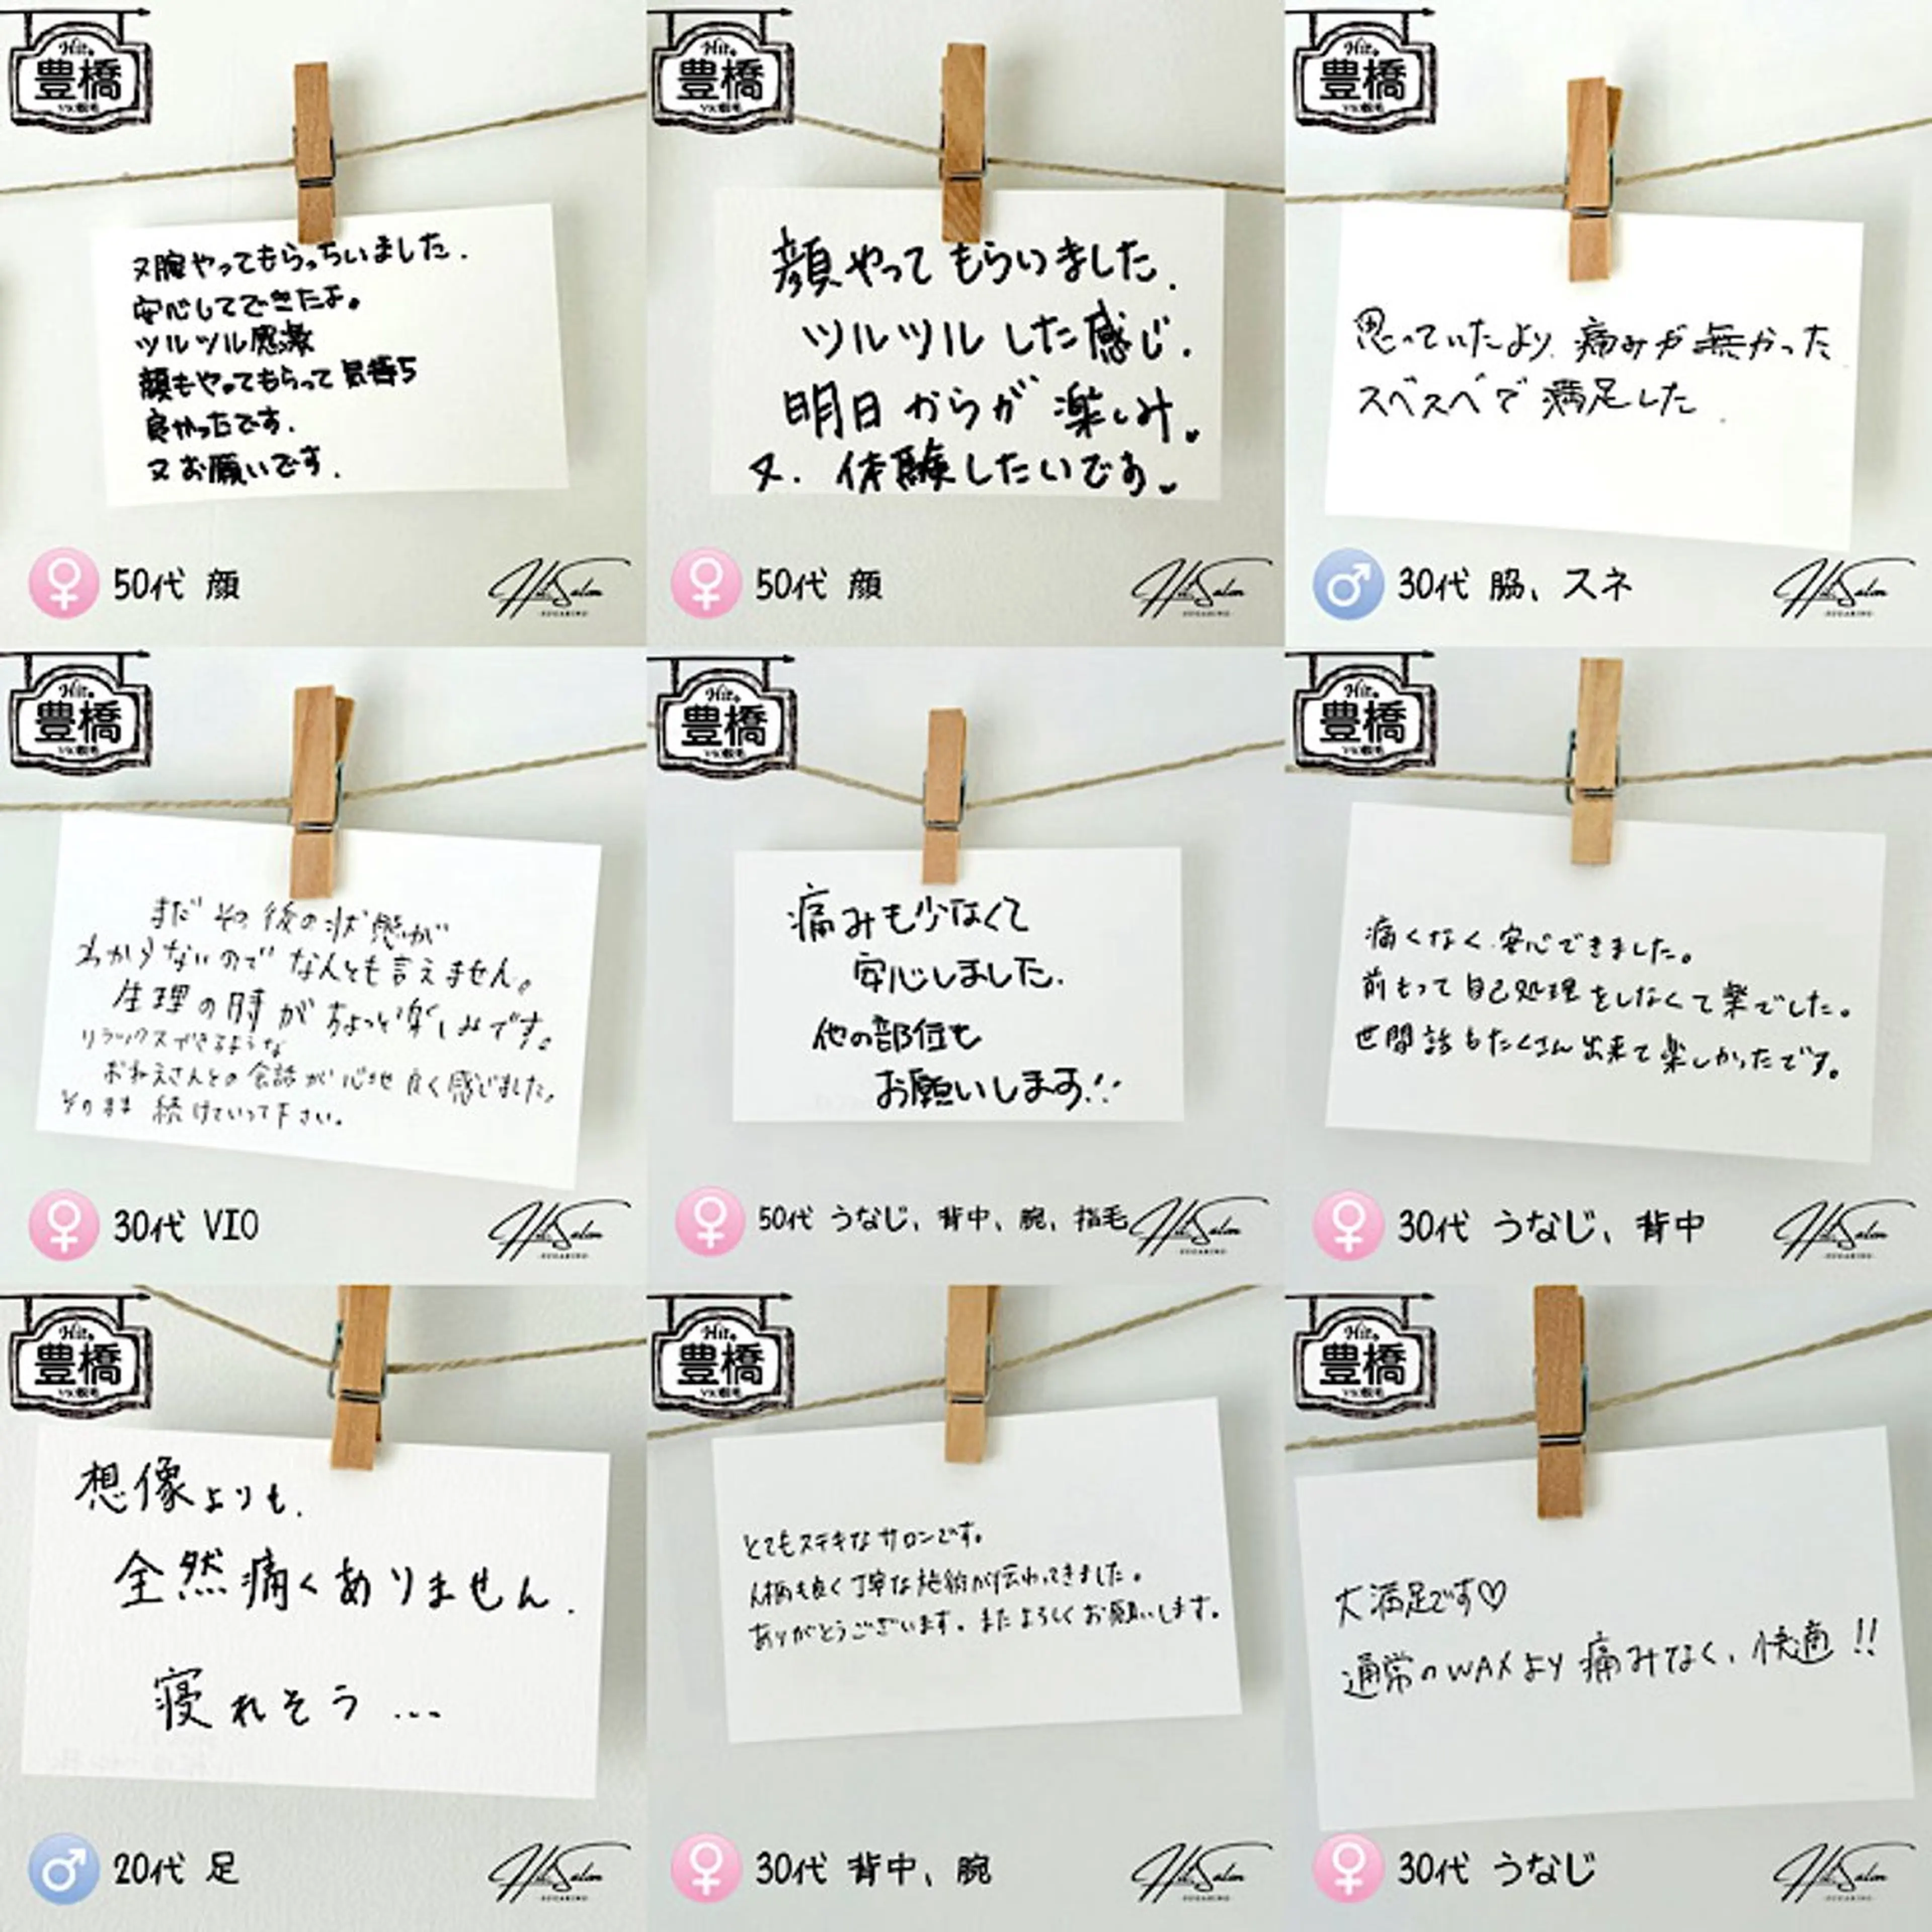 Hit.
豊橋
又腕やってもらっちいました.
安心してできたよ。
ツルツル感激
顔もやってもらって気持ち
良かったです.
又お願いです.
50代 顔
Hit Salon
Hit.
豊橋
顔やってもらいました.
ツルツルした感じ.
明日からが楽しみ。
又. 体験したいです。
50代 顔
Hit Salon
Hit.
豊橋
思っていたより痛みが無かった
スベスベで満足した
30代 脇、スネ
Hit Salon
Hit.
豊橋
まだその後の状態が
わからないのでなんとも言えません。
生理の時がちょっと楽しみです。
リラックスできるような
おねえさんとの会話が心地良く感じました。
そのまま続けていって下さい。
30代 VIO
Hit Salon
Hit.
豊橋
痛みも少なくて
安心しました.
他の部位も
お願いします!!
50代 うなじ、背中、腕、指毛
Hit Salon
Hit.
豊橋
痛くなく安心できました。
前もって自己処理をしなくて楽でした。
世間話もたくさん出来て楽しかったです。
30代 うなじ、背中
Hit Salon
Hit.
豊橋
想像よりも.
全然痛くありません.
寝れそう...
20代 足
Hit Salon
Hit.
豊橋
とてもステキなサロンです。
人柄も良く丁寧な施術が伝わってきました。
ありがとうございます。またよろしくお願いします。
30代 背中、腕
Hit Salon
Hit.
豊橋
大満足です♡
通常のWAXより痛みなく、快適!!
30代 うなじ
Hit Salon